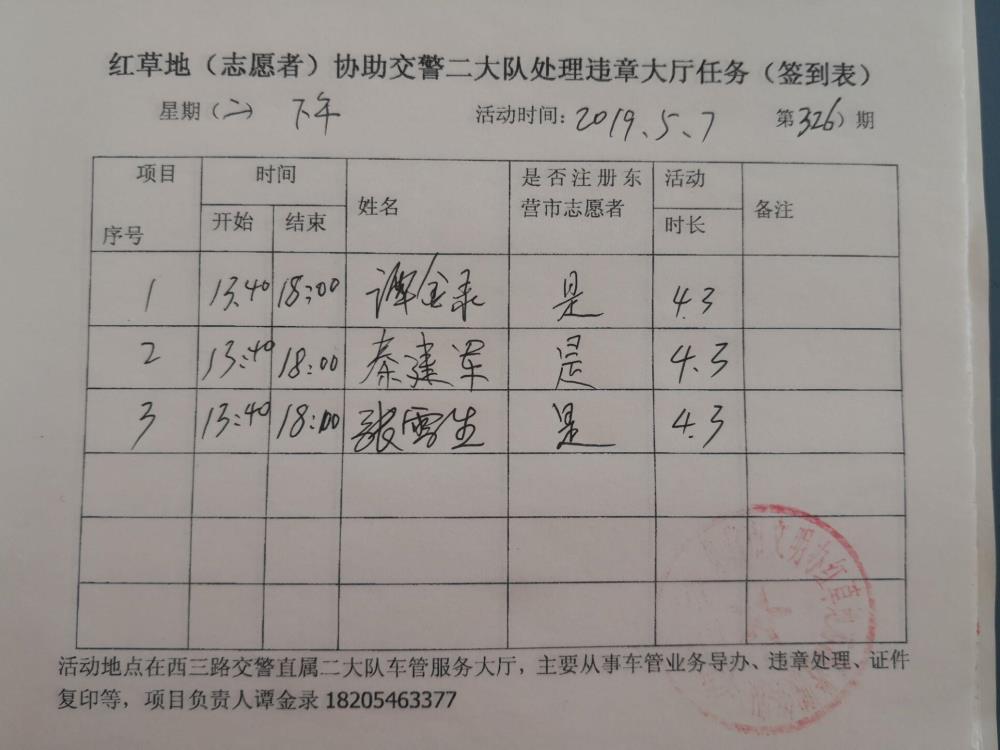 红草地（志愿者）协助交警二大队处理违章大厅任务（签到表）
星期（二） 下午 活动时间：2019、5、7 第326）期
项目 时间 姓名 是否注册东营市志愿者 活动时长 备注
序号 开始 结束
1 13:40 18:00 谭金录 是 4.3
2 13:40 18:00 秦建军 是 4.3
3 13:40 18:00 张雪生 是 4.3
活动地点在西三路交警直属二大队车管服务大厅，主要从事车管业务导办、违章处理、证件
复印等，项目负责人谭金录 18205463377